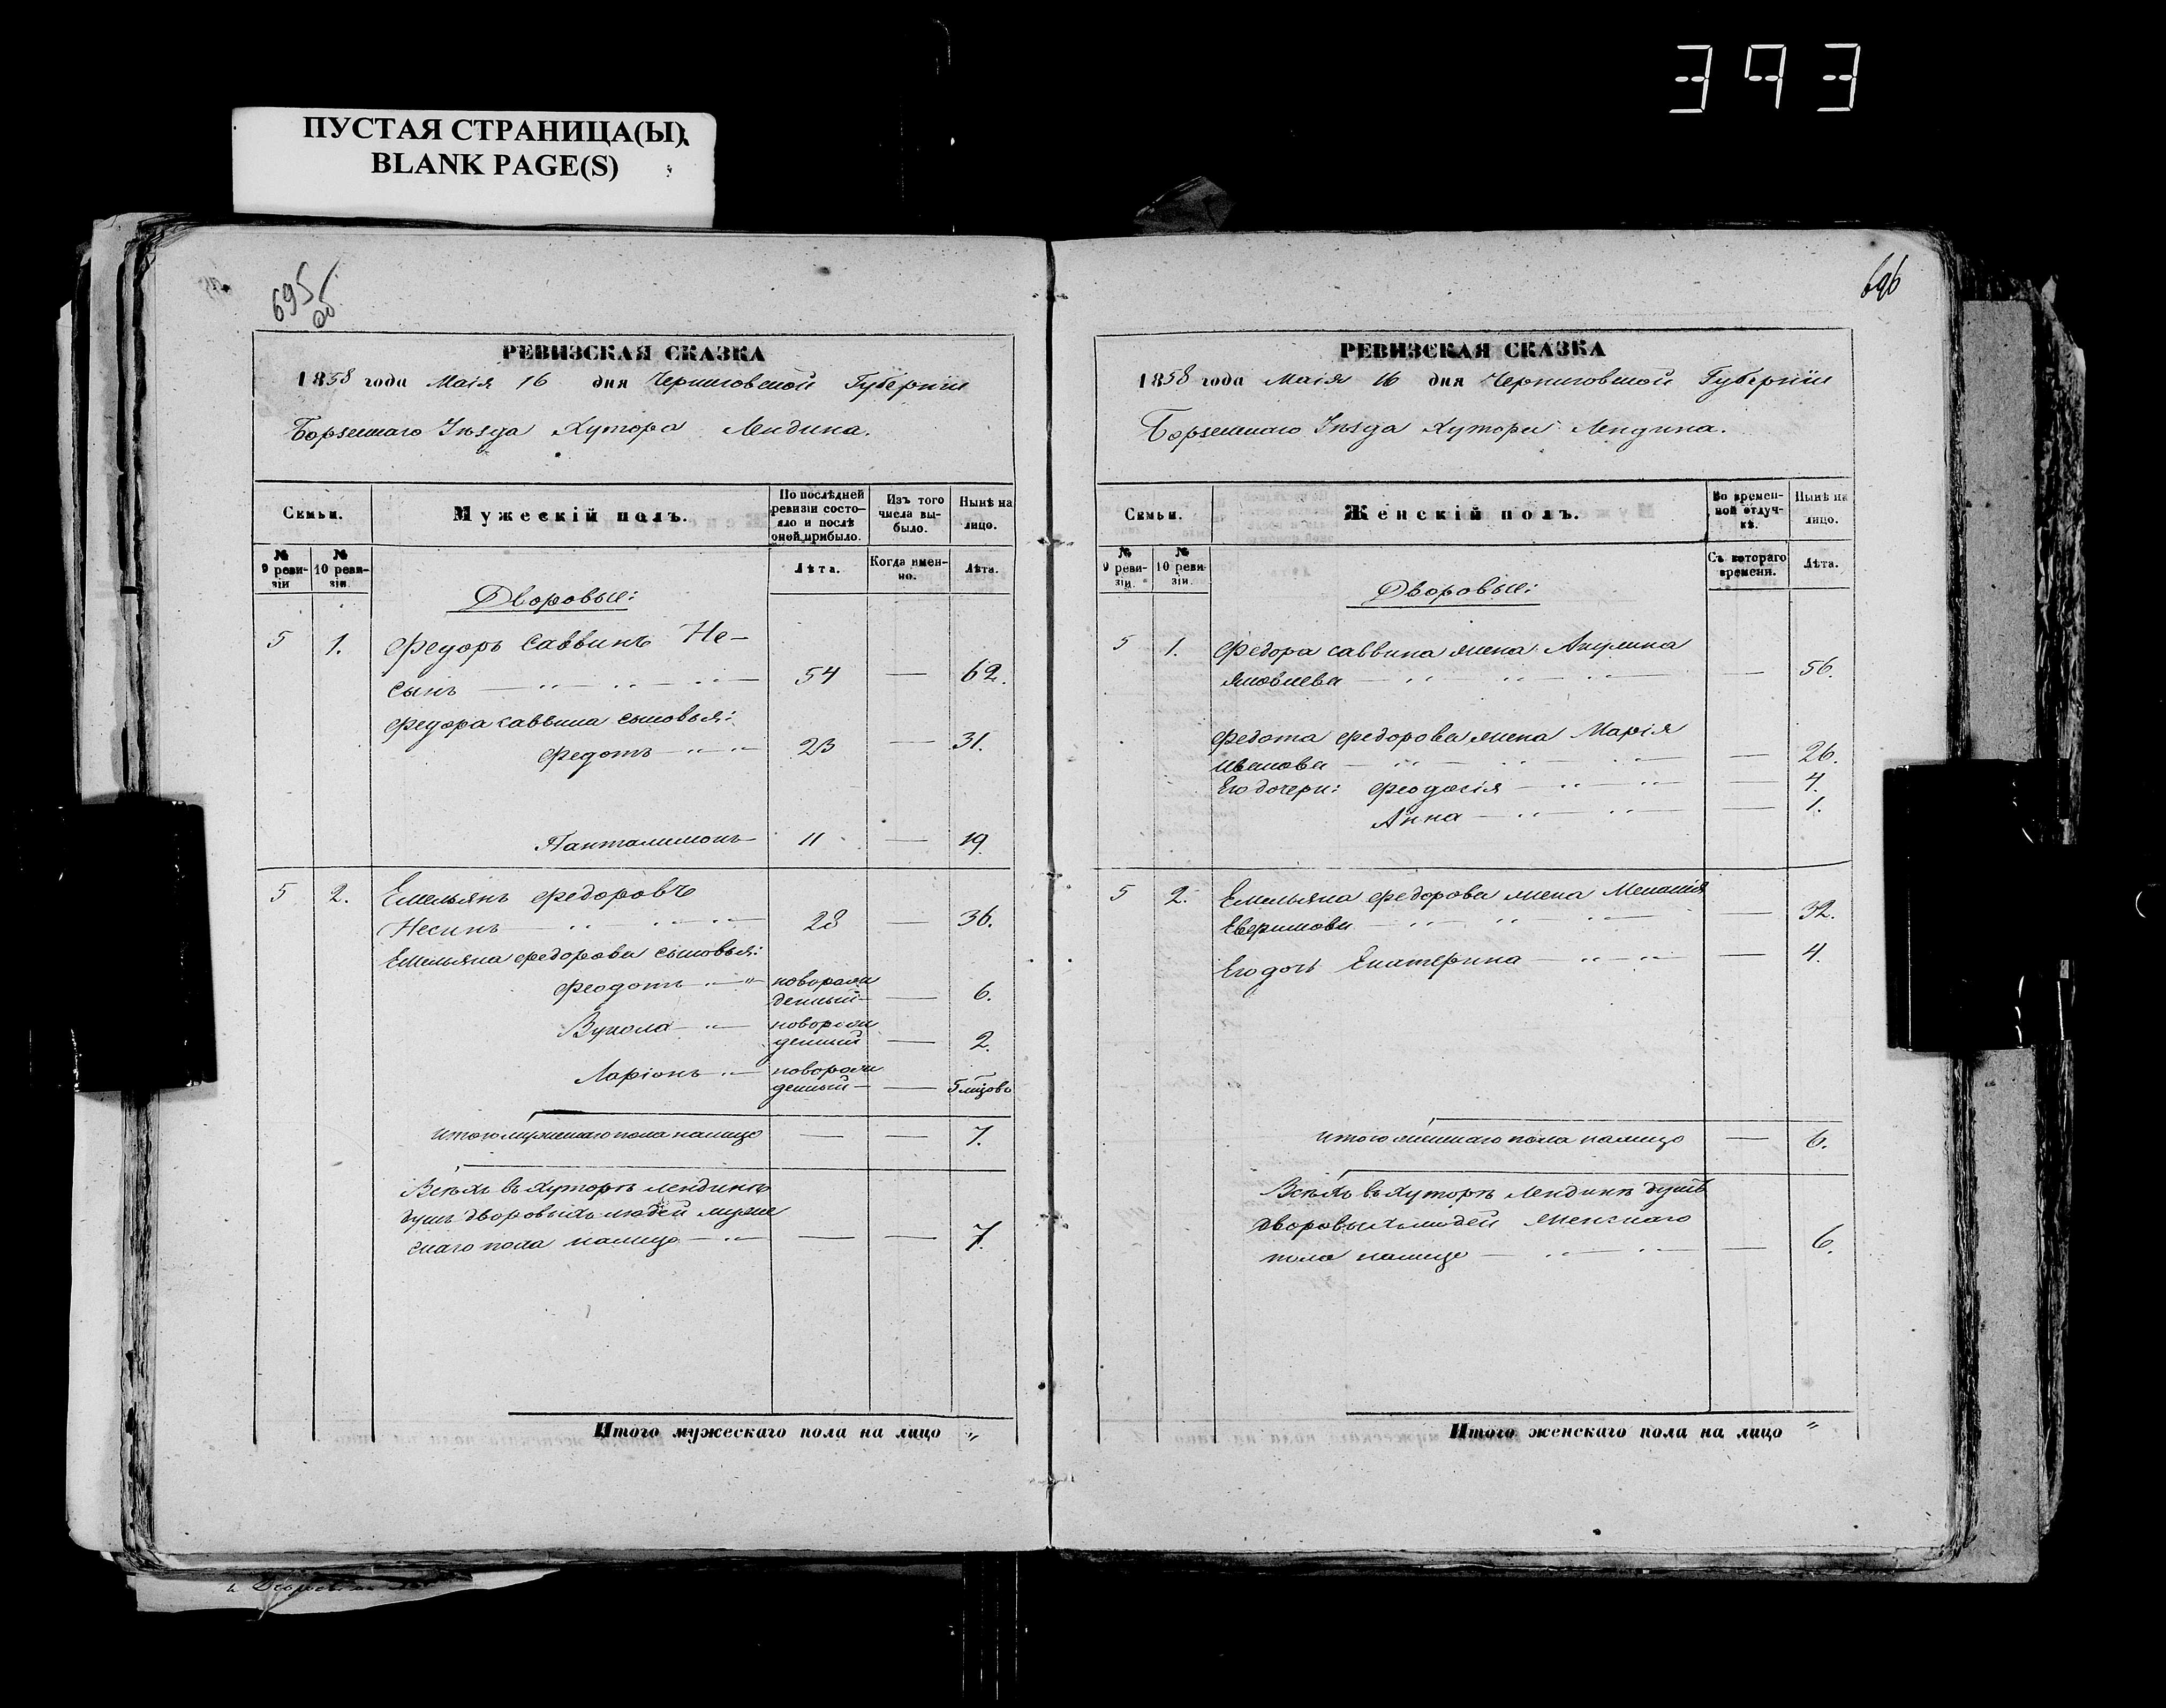 393
ПУСТАЯ СТРАНИЦА(Ы).
BLANK PAGE(S)
695 об
РЕВИЗСКАЯ СКАЗКА
1858 года Маія 16 дня Черниговской Губерніи
Борзенскаго Уѣзда Хутора Лендина.
Семьи.
Мужескій полъ.
По послѣдней ревизіи состояло и послѣ оней прибыло.
Изъ того числа выбыло.
Нынѣ на лицо.
№ 9 ревизіи
№ 10 ревизіи.
Лѣта.
Когда именно.
Лѣта.
Дворовые:
5 1. Федоръ Саввинъ Не-
сынъ 54 — 62.
Федора Саввина сыновья:
Федотъ 23 — 31.
Панталимонъ 11 — 19.
5 2. Емельянъ Федоровъ
Несинъ 28 — 36.
Емельяна Федорова сыновья:
Феодотъ новорож
денный — 6.
Вукола новорож
денный — 2.
Ларіонъ новорож
денный — 5 мѣсцовъ
Итого мужескаго пола налицо — — 7.
Всѣхъ въ Хуторѣ Лендинѣ
душъ дворовыхъ людей муже
скаго пола налицо — — 7.
Итого мужескаго пола на лицо "
696
РЕВИЗСКАЯ СКАЗКА
1858 года Маія 16 дня Черниговской Губерніи
Борзенскаго Уѣзда Хутора Лендина.
Семьи.
Женскій полъ.
Во временной отлучкѣ.
Нынѣ на лицо.
№ 9 ревизіи.
№ 10 ревизіи.
Съ котораго времени.
Лѣта.
Дворовые:
5 1. Федора Саввина жена Акулина
Яковлева — 56.
Федота Федорова жена Марія
Иванова — 26.
Его дочери: Феодосія — 4.
Анна — 1.
5 2. Емельяна Федорова жена Меланія
Евфимова — 32.
Его дочь Екатерина — 4.
Итого женскаго пола налицо — 6.
Всѣхъ въ Хуторѣ Лендинѣ душъ
дворовыхъ людей женскаго
пола налицо — 6.
Итого женскаго пола на лицо "